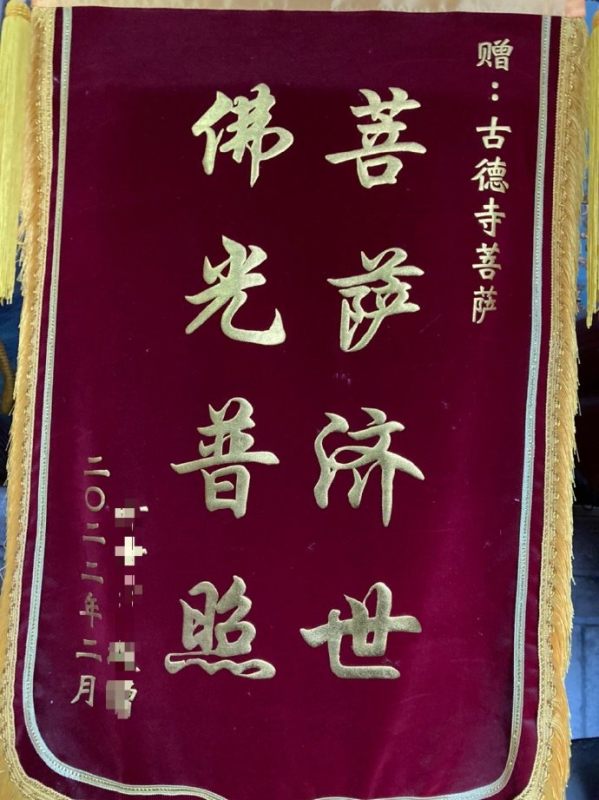 赠：古德寺菩萨
菩萨济世
佛光普照
二〇二二年二月